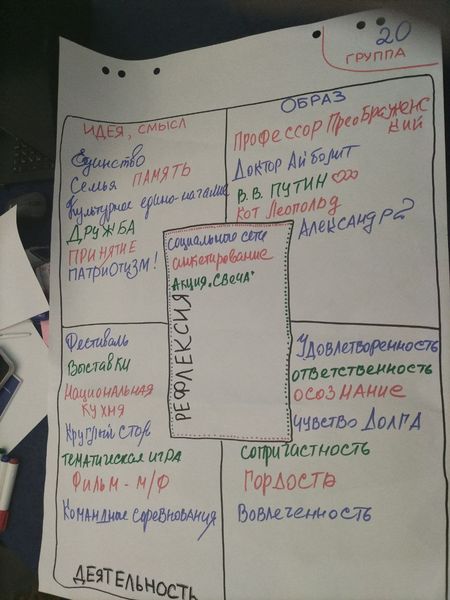 20
ГРУППА
ИДЕЯ, СМЫСЛ
Единство
Семья ПАМЯТЬ
Культурное едино-начание
ДРУЖБА
ПРИНЯТИЕ
ПАТРИОТИЗМ!
ОБРАЗ
ПРОФЕССОР ПРЕОБРАЖЕНС
КИЙ
ДОКТОР АЙБОЛИТ
В.В. ПУТИН
КОТ ЛЕОПОЛЬД
АЛЕКСАНДР
СОЦИАЛЬНОГО СЕТИ
АНКЕТИРОВАНИЕ
АКЦИЯ „СВЕЧА"
РЕФЛЕКСИЯ
Фестиваль
Выставки
НАЦИОНАЛЬНАЯ
КУХНЯ
Круглый стол
ТЕМАТИЧЕСКАЯ ИГРА
ФИЛЬМ - М/Ф
Командные соревнования
ДЕЯТЕЛЬНОСТЬ
УДОВЛЕТВОРЕННОСТЬ
ОТВЕТСТВЕННОСТЬ
ОСОЗНАНИЕ
ЧУВСТВО ДОЛГА
СОПРИЧАСТНОСТЬ
ГОРДОСТЬ
ВОВЛЕЧЕННОСТЬ